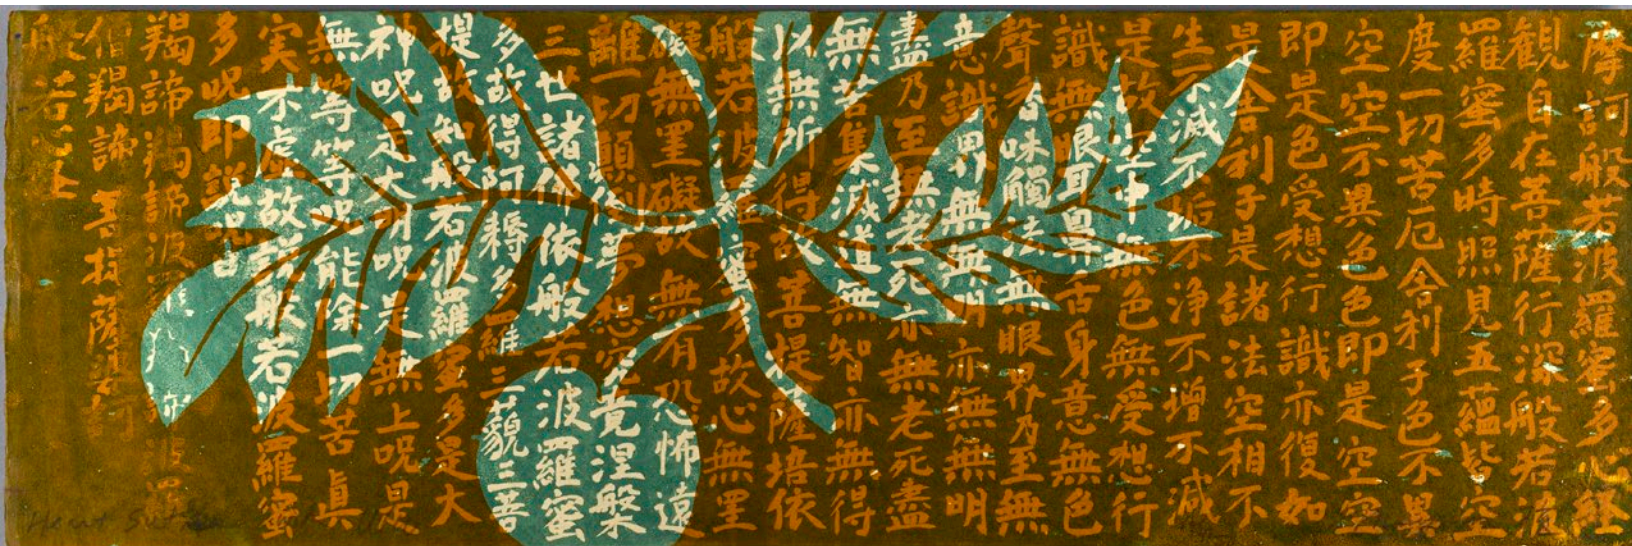 摩訶般若波羅蜜多心経
観自在菩薩行深般若波
羅蜜多時照見五蘊皆空
度一切苦厄舍利子色不異
空空不異色色即是空空
即是色受想行識亦復如
是舍利子是諸法空相不
生不滅不垢不浄不増不減
是故空中無色無受想行
識無眼耳鼻舌身意無色
聲香味觸法無眼界乃至無
意識界無無明亦無無明
盡乃至無老死亦無老死盡
無苦集滅道無智亦無得
以無所得故菩提薩埵依
般若波羅蜜多故心無罣
礙無罣礙故無有恐怖遠
離一切顛倒夢想究竟涅槃
三世諸佛依般若波羅蜜
多故得阿耨多羅三藐三菩
提故知般若波羅蜜多是大
神呪是大明呪是無上呪是
無等等呪能除一切苦眞
実不虚故説般若波羅蜜
多呪即説呪曰
羯諦羯諦波羅羯諦波羅
僧羯諦菩提薩婆訶
般若心経
Heart Sutra